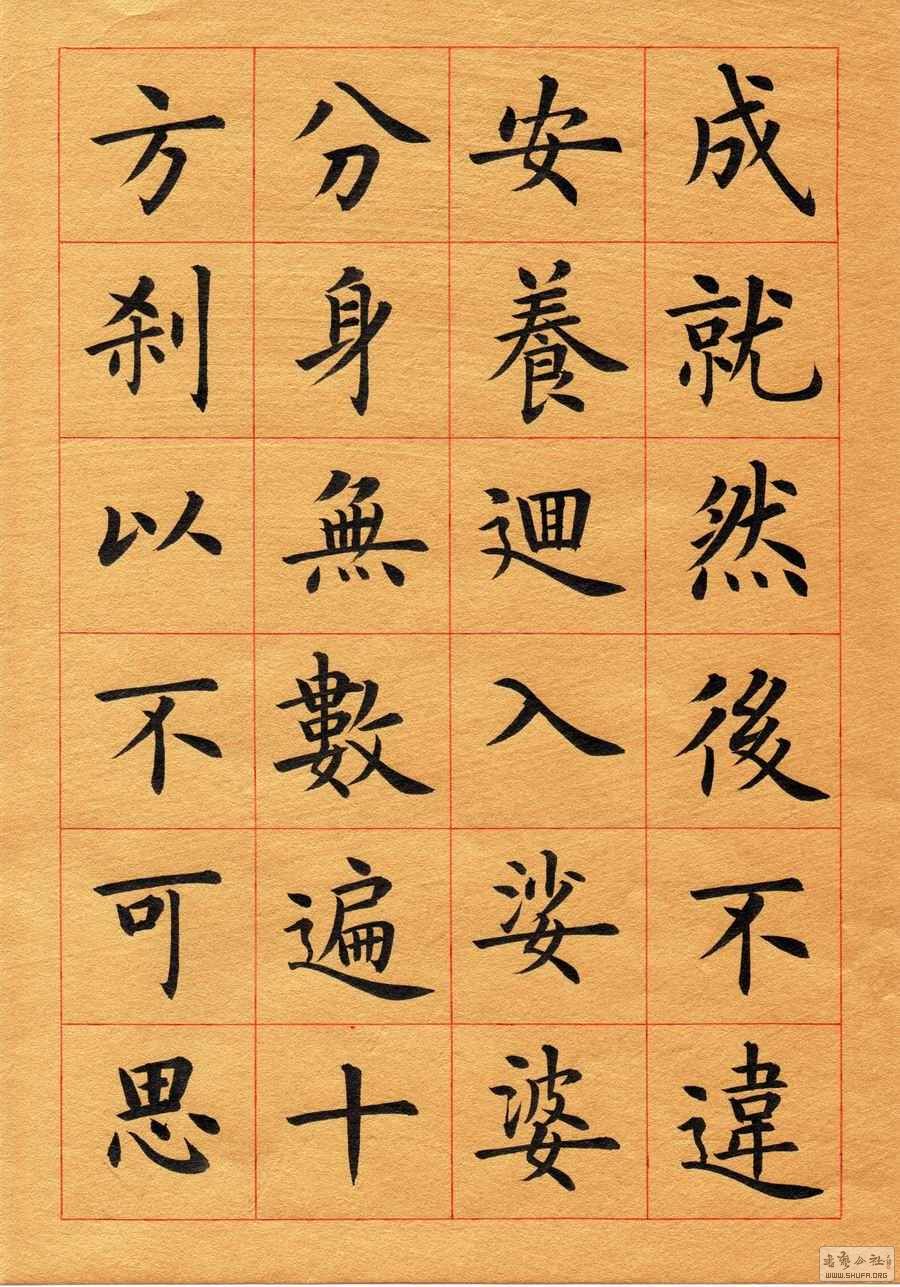 成就然後不違
安養迴入娑婆
分身無數遍十
方刹以不可思
書藝公社
WWW.SHUFA.ORG